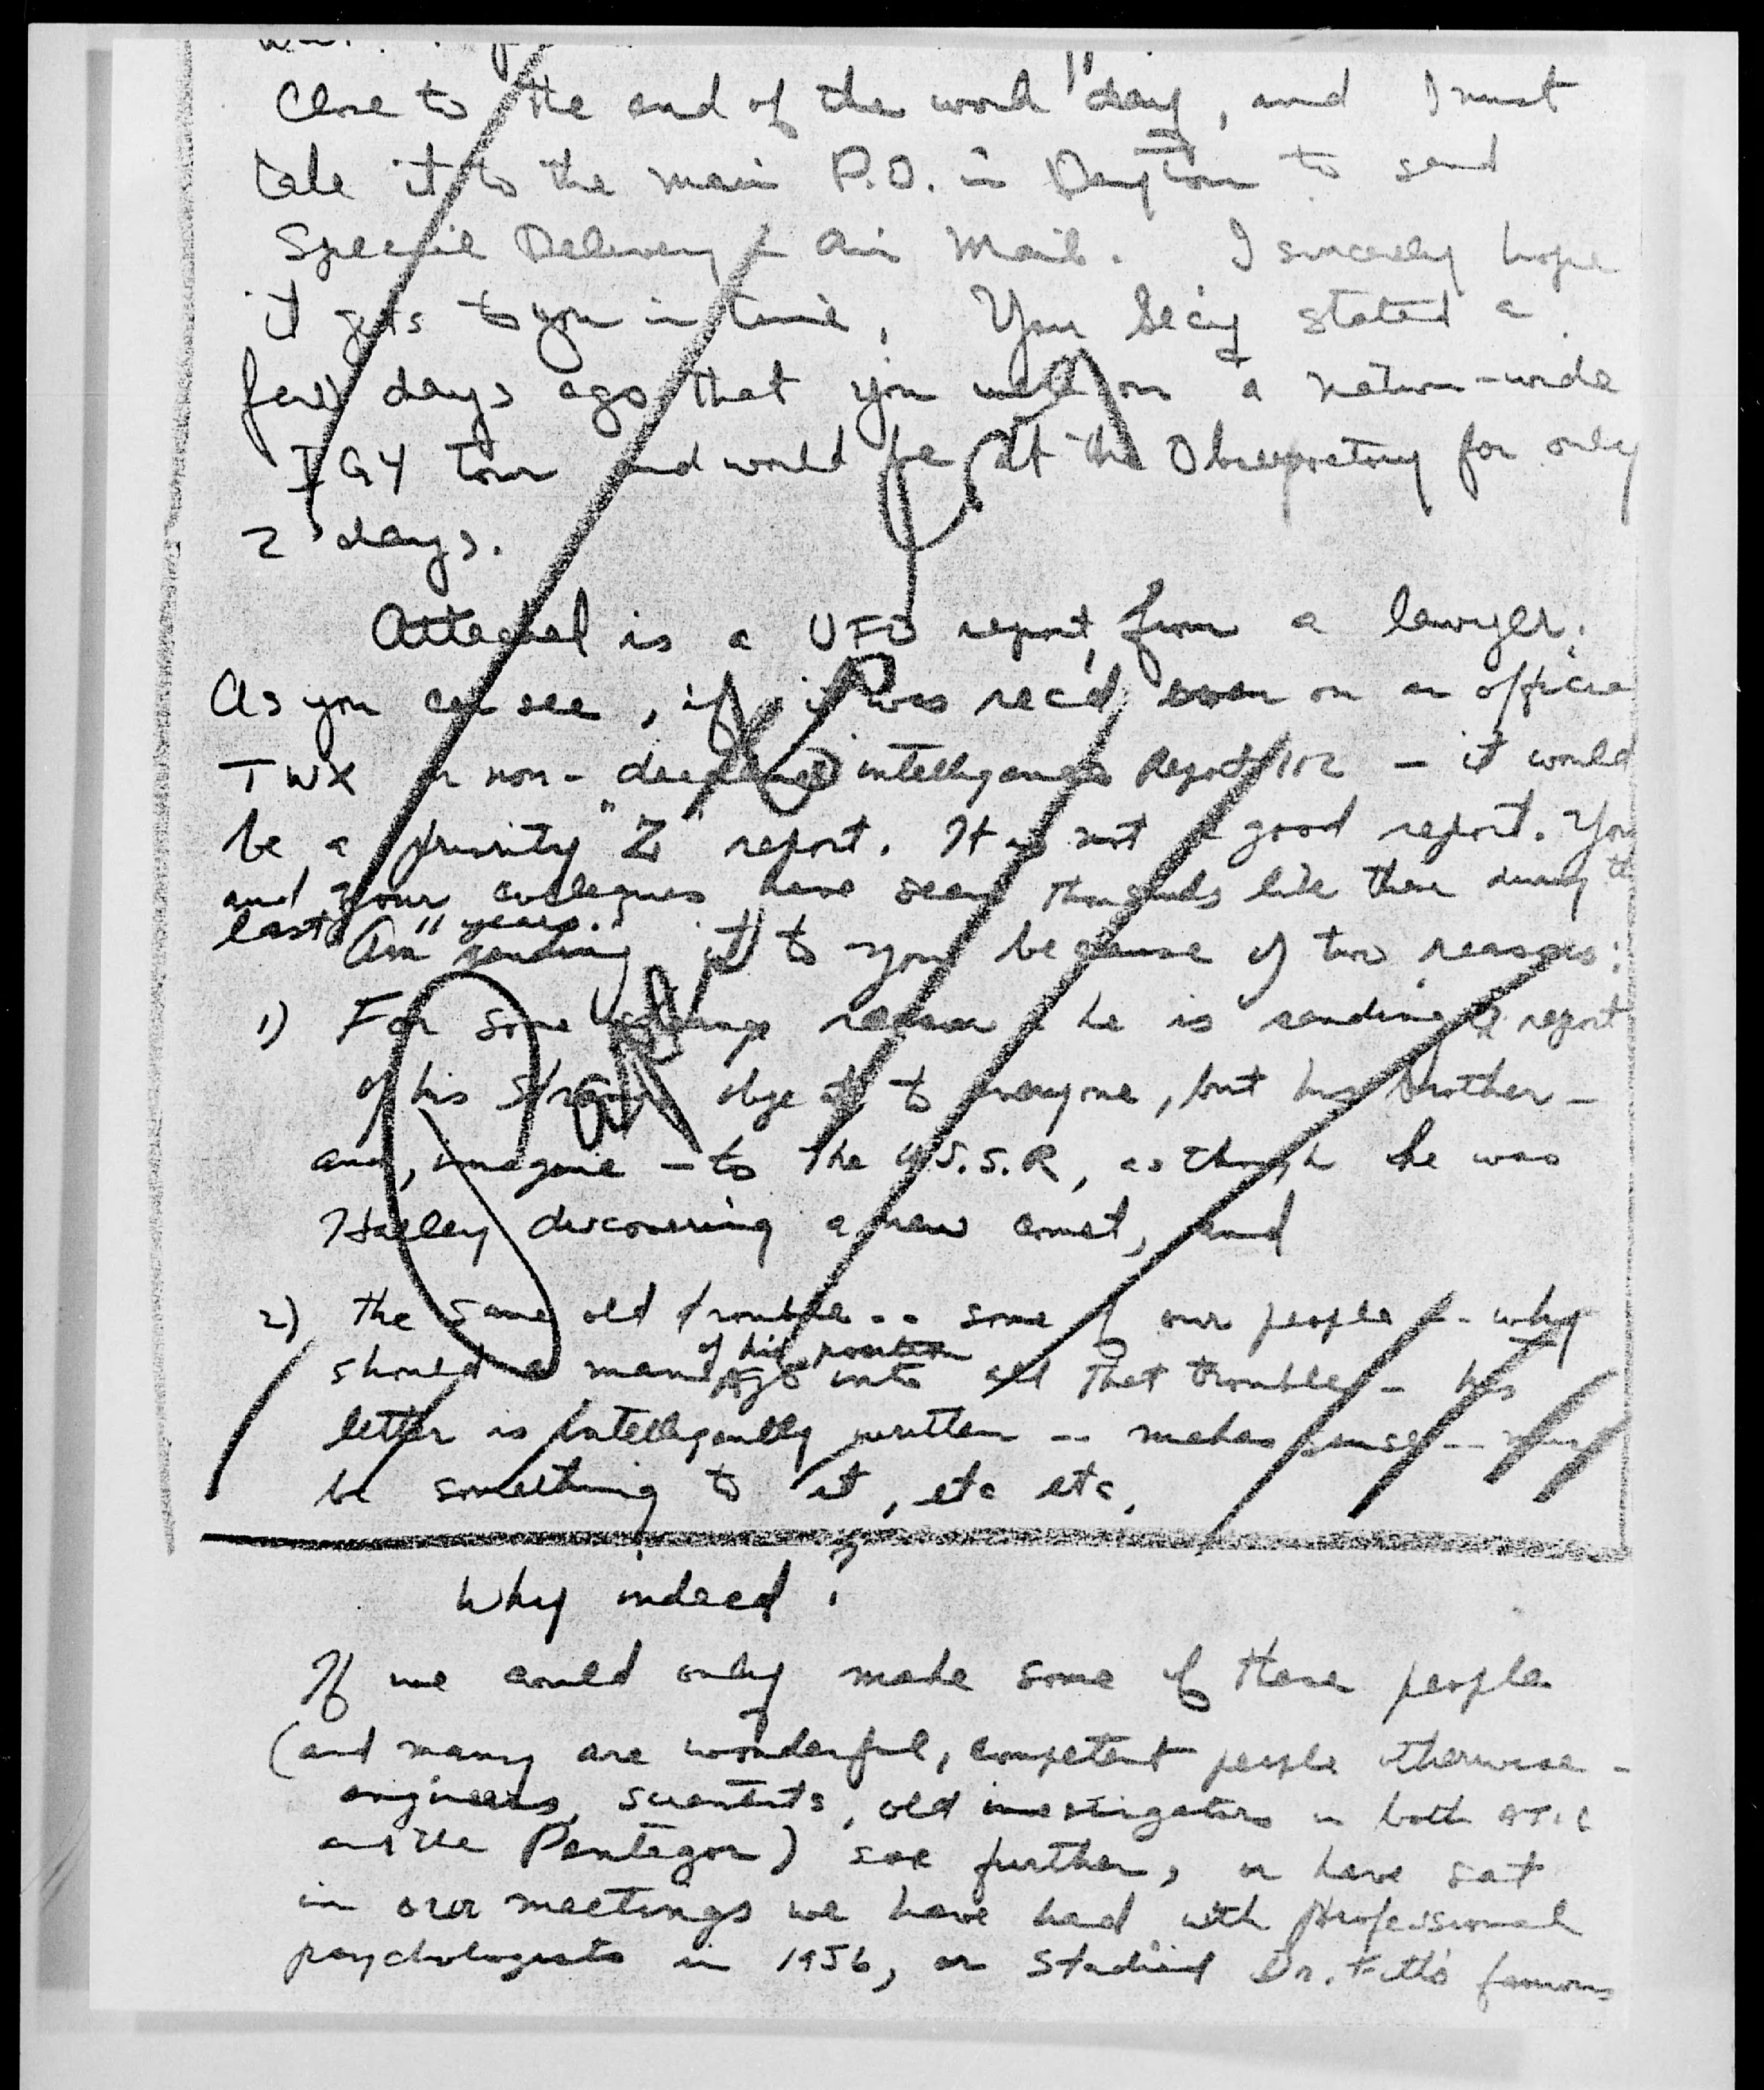 Close to the end of the work day, and I must
take it to the main P.O. in Dayton to send
Special Delivery & Air Mail. I sincerely hope
it gets to you in time, Your Sec'y stated a
few days ago that you were on a nation-wide
IGY tour and would be at the Observatory for only
2 days.
Attached is a UFO report from a lawyer.
As you can see, if it was rec'd even on an official
TWX or non- intelligence Report 112 — it would
be a priority "Z" report. It is not a good report. You
and your colleagues have seen thousands like these during the
last years.
Am sending it to you because of two reasons:
1) For some strange reason he is sending report
of his strange object to everyone, but his brother —
and, imagine — to the U.S.S.R, as though he was
Halley discovering a new comet, and
2) the same old trouble -- some of our people -- why
of his position
should a man go into all that trouble -- his
letter is intelligently written -- makes sense -- may
be something to it, etc etc.
Why indeed?
If we could only make some of these people
(and many are wonderful, competent people otherwise —
engineers, scientists, old investigators in both ATIC
and the Pentagon) see further, or have sat
in our meetings we have had with professional
psychologists in 1956, or studied Dr. Fitts famous